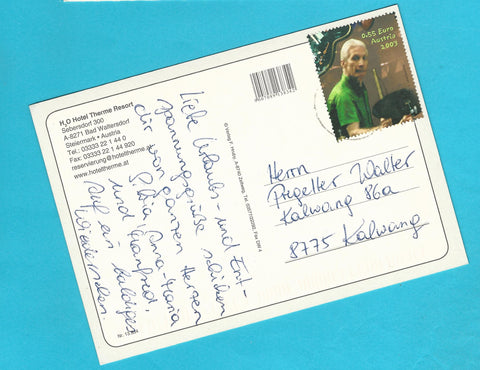 H2O Hotel Therme Resort
Sebersdorf 300
A-8271 Bad Waltersdorf
Steiermark • Austria
Tel.: 03333 22 144 0
Fax: 03333 22 1 44 920
reservierung@hoteltherme.at
www.hoteltherme.at
Liebe Urlaubs- und Ent-
spannungsgrüße schicken
dir von ganzem Herzen
Silvia Anna Maria
und Manfred,
Auf ein baldiges
Wiedersehen.
0.55 Euro
Austria
2003
Herrn
Prgeller Walter
Kalwang 86a
8775 Kalwang